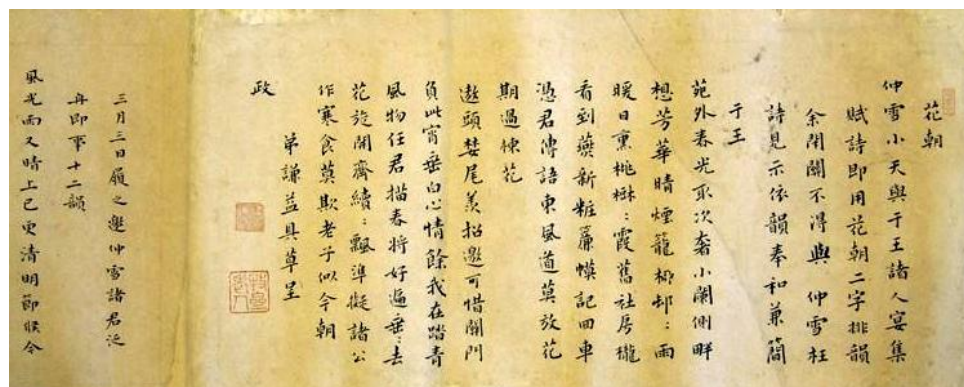 花朝
仲雪小天與于王諸人宴集
賦詩即用花朝二字排韻
余閉關不得與仲雪枉
詩見示依韻奉和兼簡
于王
苑外春光取次奢小闌側畔
想芳華晴煙籠柳邨〻雨
暖日熏桃樹〻霞舊社房櫳
看到燕新粧簾幙記回車
憑君傳語東風道莫放花
期過楝花
遨頭婪尾羨招邀可惜關門
負此宵垂白心情餘我在踏青
風物任君描春將好遍垂〻去
花旋開齊續〻飄準擬諸公
作寒食莫欺老子似今朝
弟謙益具草呈
政
三月三日履之邀仲雪諸君泛
舟即事十二韻
風光雨又晴上巳更清明節候今